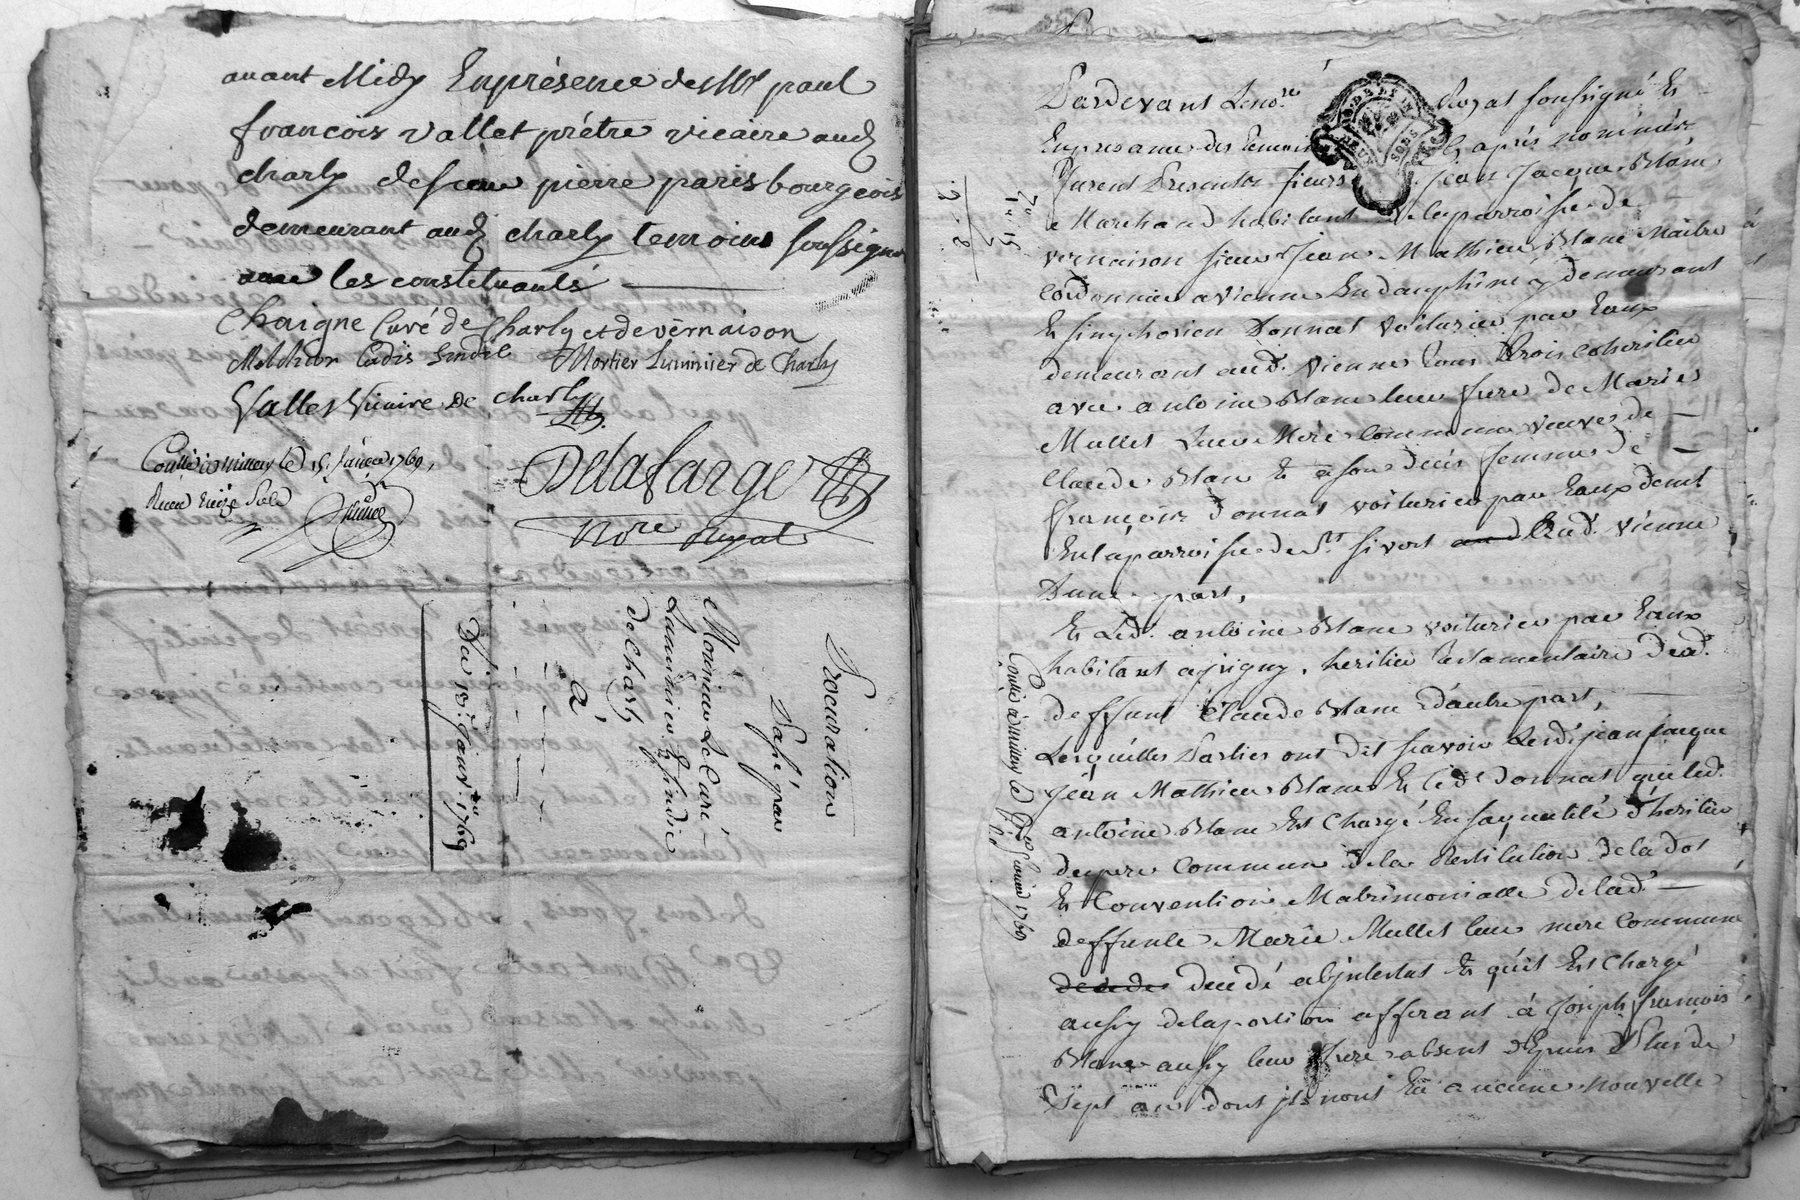 avant Midy En présence de Mre paul
françois vallet prétre vicaire aud
charly de sieur pierre paris bourgeois
demeurant aud charly temoins soussignés
avec les constituants
Chaigne Curé de Charly et de vernaison
Melchior Cadis Sindic Mortier Luminier de Charly
Vallet Vicaire de charly
Delafarge
Nore Royal
Controllé à Millery le 15. Janvier 1769.
Receu treize sols
Procuration
Passé par
Monsieur Le Curé
Luminier & sindic
de Charly
à
Du 15. Janvr. 1769
Pardevant Le nore Royal soussigné Et
En presance des temoins cy après nommés
furent Presents sieurs jean Jacque Blanc
Marchand habitant de la parroisse de
vernaison sieur Jean Mathieu Blanc Maitre
Cordonnier a vienne En dauphiné y demeurant
Et simphorien Donnat voiturier par Eaux
demeurant aud. Vienne tous trois coheritier
avec antoine Blanc leur frere de Marie
Mullet Leur Mere Commune veuve de
Claude Blanc Et à son decès femme de
françois Donnat voiturier par Eaux demt
En la parroisse de St. sivert aud. vienne
D'une part,
Et Led. antoine Blanc voiturier par Eaux
habitant a grigny, heritier testamentaire dud.
deffunt Claude Blanc D'autre part,
Lesquelles Parties ont dit scavoir Lesd. jean jacque
jean Mathieu Blanc Et led. donnat que led.
antoine Blanc Est Chargé En sa qualité d'heritier
du pere Commun de la Restitution de la dot
Et Convention Matrimonialle de lad.
deffunte Marie Mullet leur mere Commune
decedé abjntestat Et qu'il Est Chargé
aussy de la portion afferant à Joseph françois
Blanc aussy leur frere absent depuis Plus de
sept an dont jls n'ont Eu aucune nouvelle
Controllé à Millery le 1769